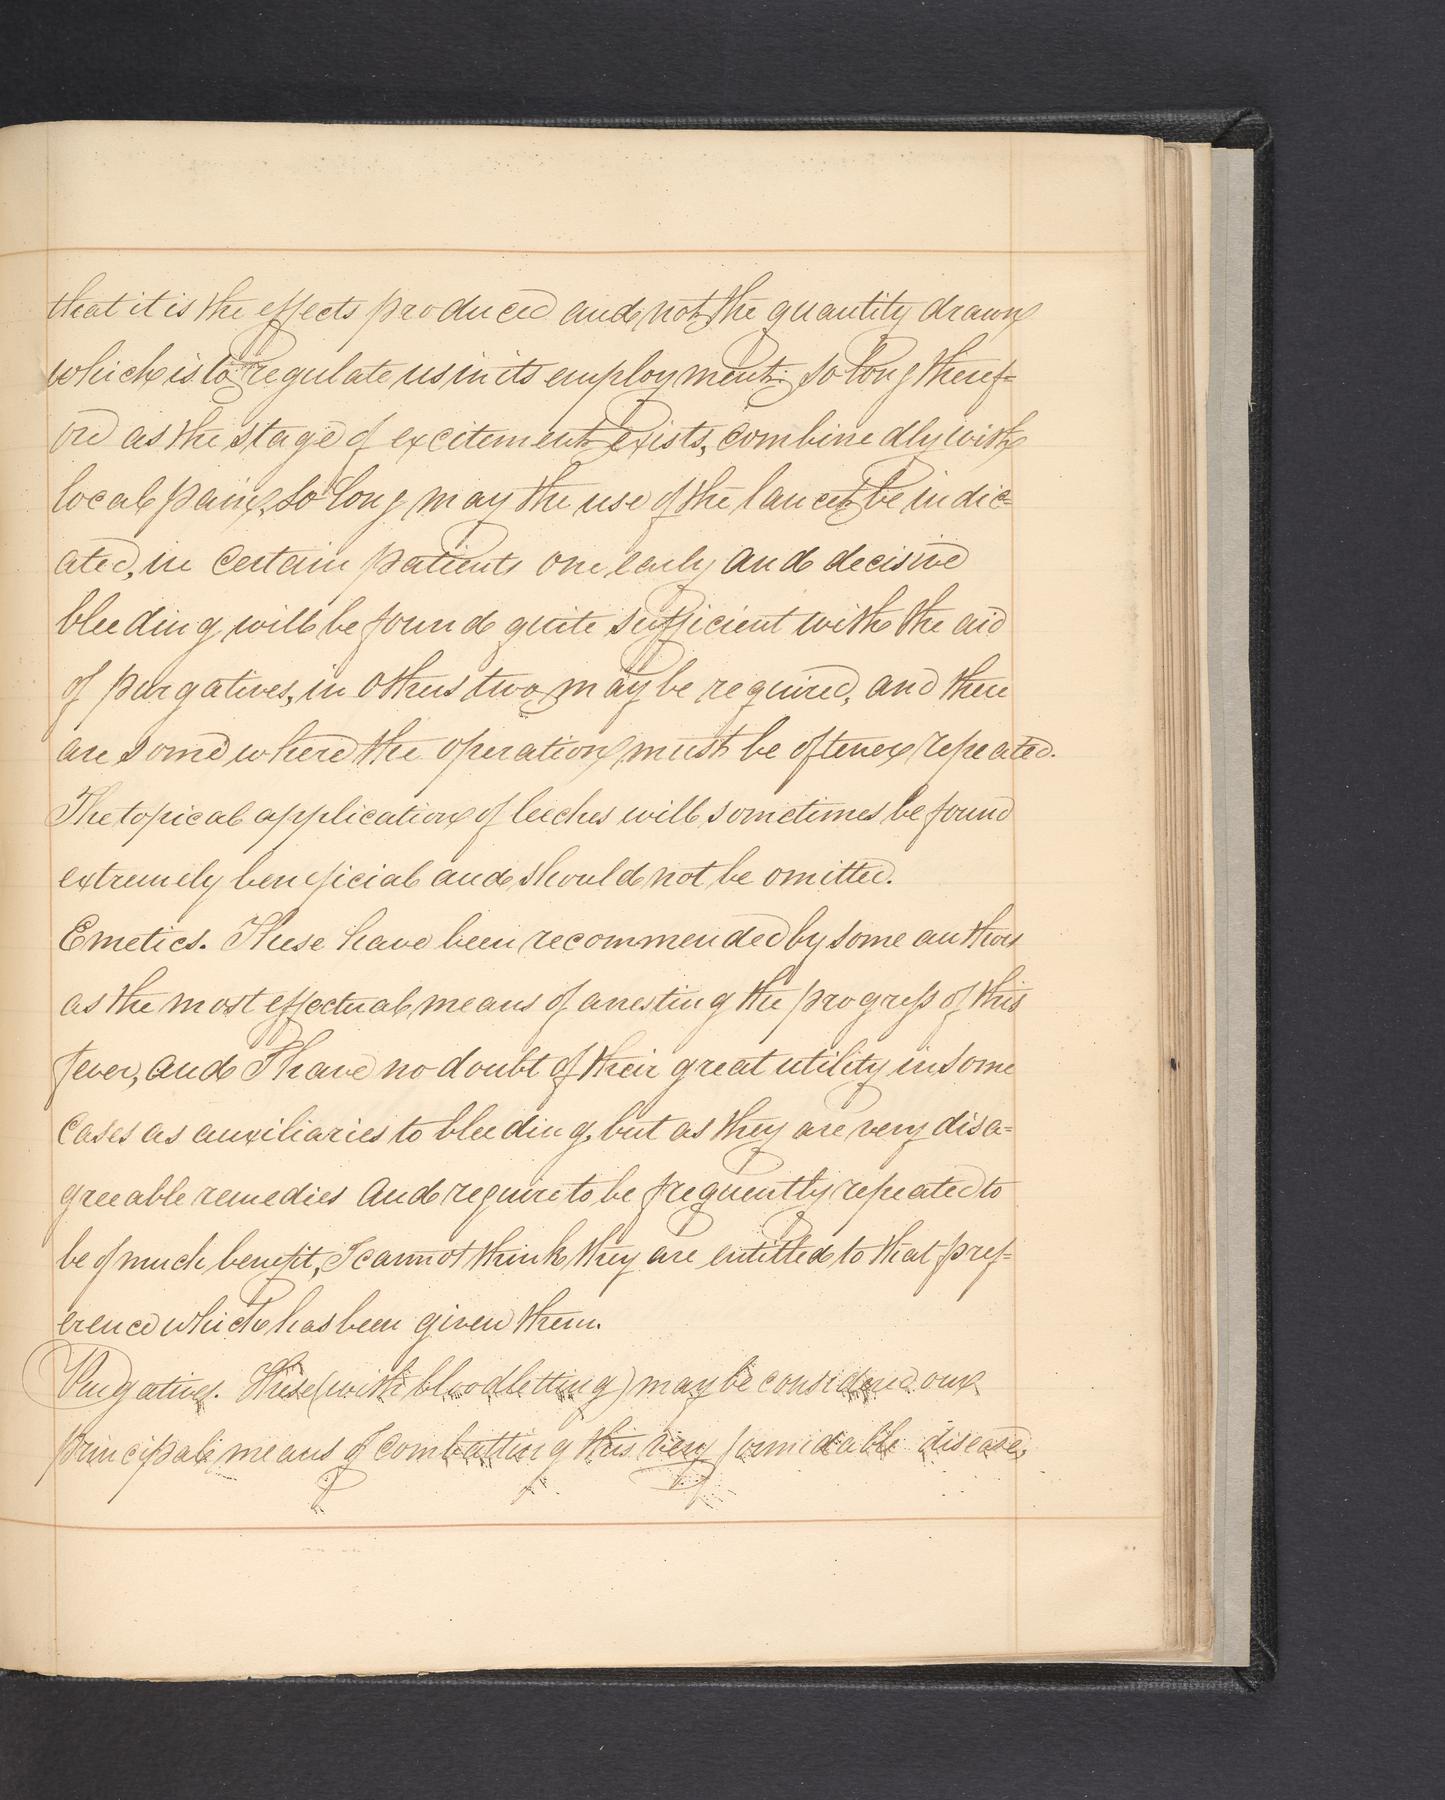 that it is the effects produced and not the quantity drawn
which is to regulate us in its employment: so long theref=
ore as the stage of excitement exists, combinedly with
local pain, so long may the use of the lancet be indic=
ated, in certain patients one early and decisive
bleeding will be found quite sufficient with the aid
of purgatives, in others two may be required, and there
are some where the operation must be oftener repeated.
The topical application of leeches will sometimes be found
extremely beneficial and should not be omitted.
Emetics. These have been recommended by some authors
as the most effectual means of arresting the progress of this
fever, and I have no doubt of their great utility in some
cases as auxiliaries to bleeding, but as they are very disa=
greeable remedies and require to be frequently repeated to
be of much benefit, I cannot think they are entitled to that pref=
erence which has been given them.
Purgatives. These (with bloodletting) may be considered our
principal means of combatting this very formidable disease,